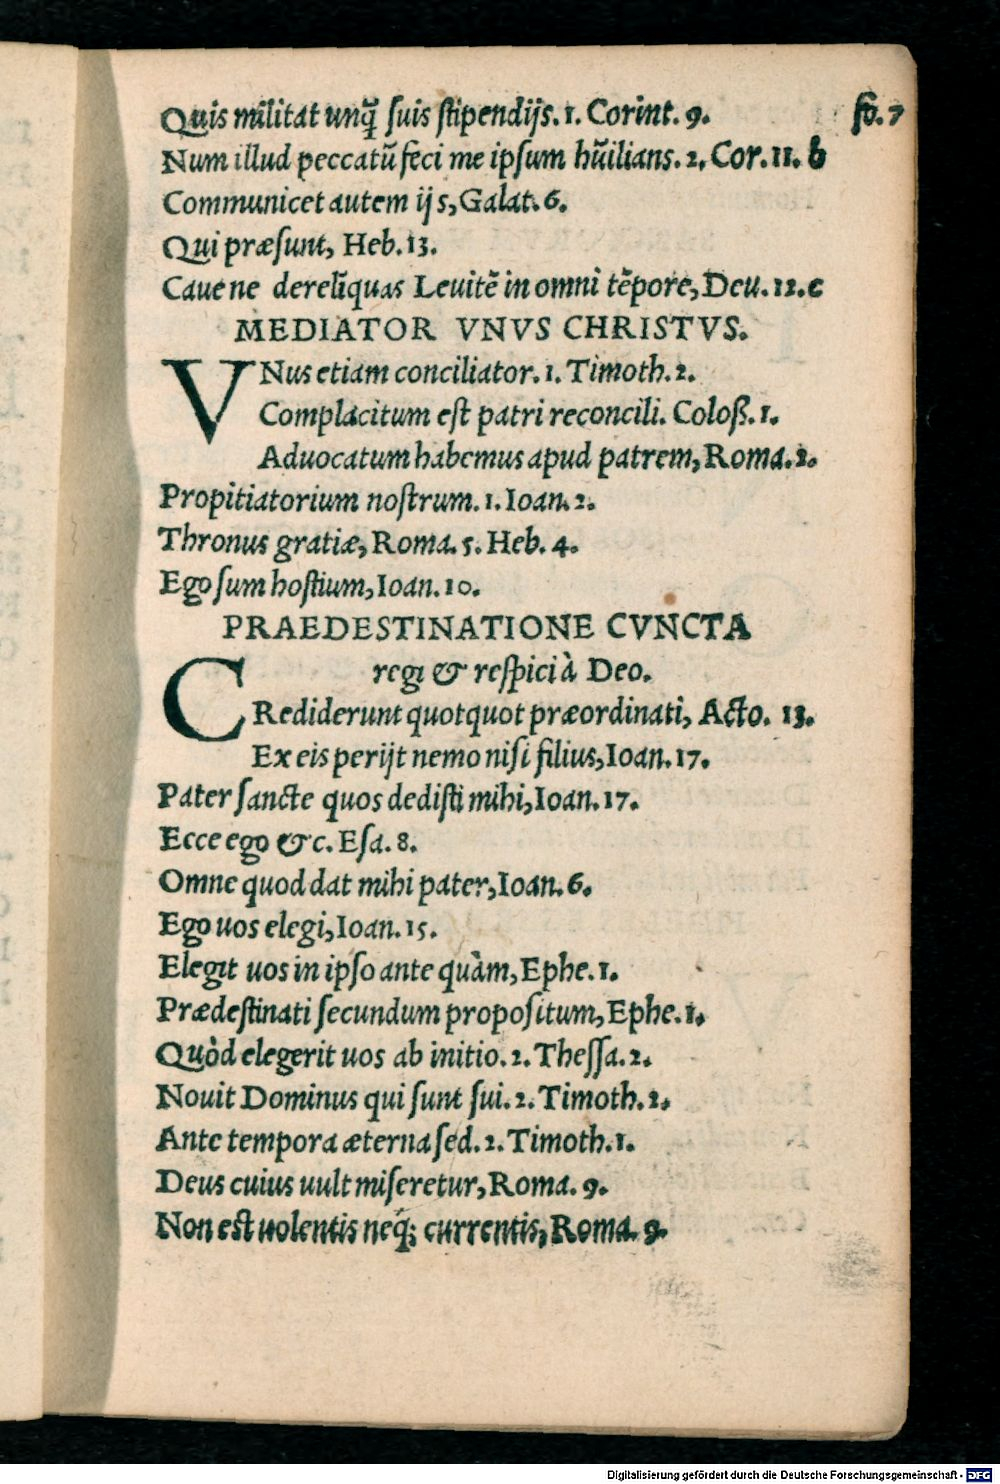 Quis militat unq̃ suis stipendijs. 1. Corint. 9. fo. 7
Num illud peccatũ feci me ipsum hũilians. 2. Cor. 11. b
Communicet autem ijs, Galat. 6.
Qui præsunt, Heb. 13.
Caue ne derelĩquas Leuitẽ in omni tẽpore, Deu. 12. c
MEDIATOR VNVS CHRISTVS.
VNus etiam conciliator. 1. Timoth. 2.
Complacitum est patri reconcili. Coloß. 1.
Aduocatum habemus apud patrem, Roma. 2.
Propitiatorium nostrum. 1. Ioan. 2.
Thronus gratiæ, Roma. 5. Heb. 4.
Ego sum hostium, Ioan. 10.
PRAEDESTINATIONE CVNCTA
regi & respici à Deo.
CRediderunt quotquot præordinati, Acto. 13.
Ex eis perijt nemo nisi filius, Ioan. 17.
Pater sancte quos dedisti mihi, Ioan. 17.
Ecce ego &c. Esa. 8.
Omne quod dat mihi pater, Ioan. 6.
Ego uos elegi, Ioan. 15.
Elegit uos in ipso ante quàm, Ephe. 1.
Prædestinati secundum propositum, Ephe. 1.
Quòd elegerit uos ab initio. 2. Thessa. 2.
Nouit Dominus qui sunt sui. 2. Timoth. 2.
Ante tempora æterna sed. 2. Timoth. 1.
Deus cuius uult miseretur, Roma. 9.
Non est uolentis neq; currentis, Roma. 9.
Digitalisierung gefördert durch die Deutsche Forschungsgemeinschaft - DFG